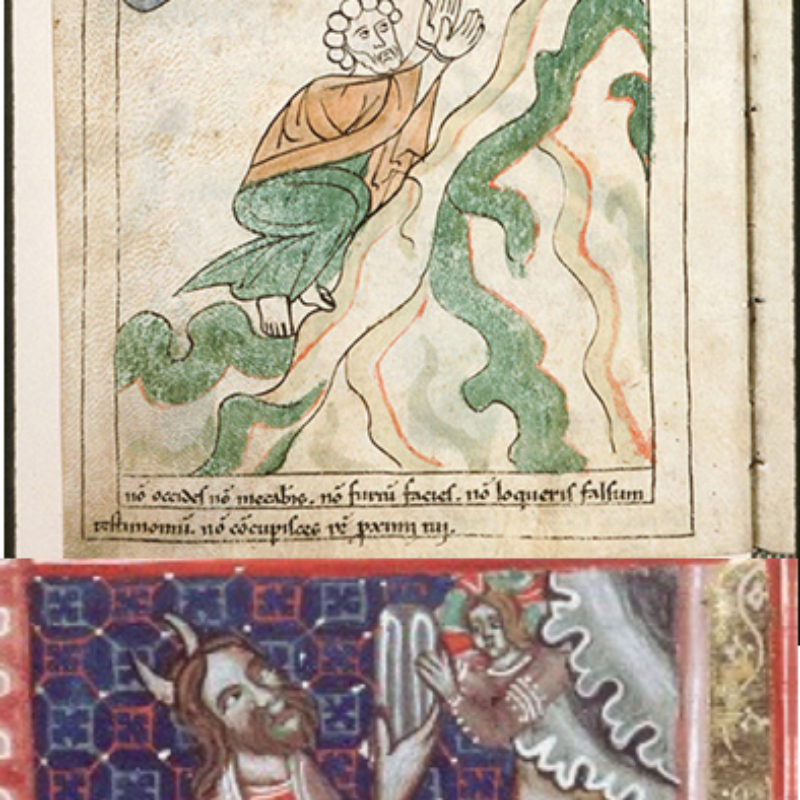 nō occides nō mecabis. nō furtū facies. nō loqueris falsum
testimoniū. nō cōcupisces rē proximi tui.